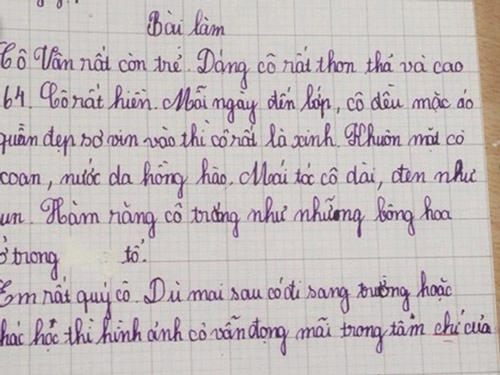 Bài làm
Cô Vân rất còn trẻ. Dáng cô rất thon thả và cao
64. Cô rất hiền. Mỗi ngày đến lớp, cô đều mặc áo
quần đẹp sơ vin vào thì cô rất là xinh. Khuôn mặt cô
coan, nước da hồng hào. Mái tóc cô dài, đen như
un. Hàm răng cô trắng như những bông hoa
ở trong tổ.
Em rất quý cô. Dù mai sau có đi sang trường hoặc
hác học thì hình ảnh cô vẫn đọng mãi trong tâm chí của